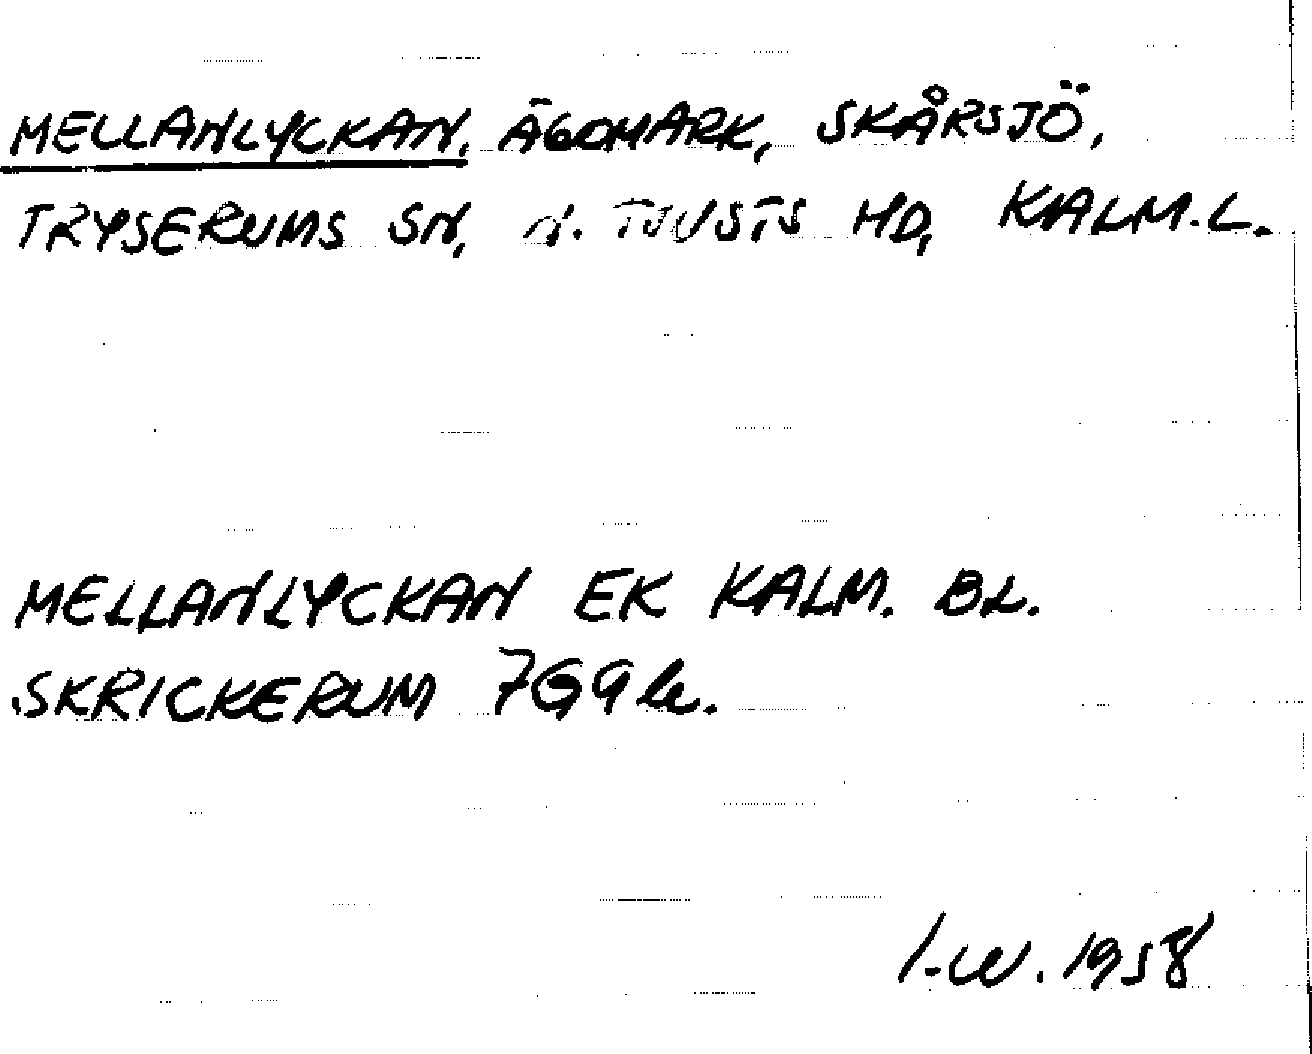 MELLANLYCKAN, ÄGOMARK, SKÅRSJÖ,
TRYSERUMS SN, N. TJUSTS HD, KALM. L.
MELLANLYCKAN EK KALM. BL.
SKRICKERUM 7G9h.
I.W. 1958